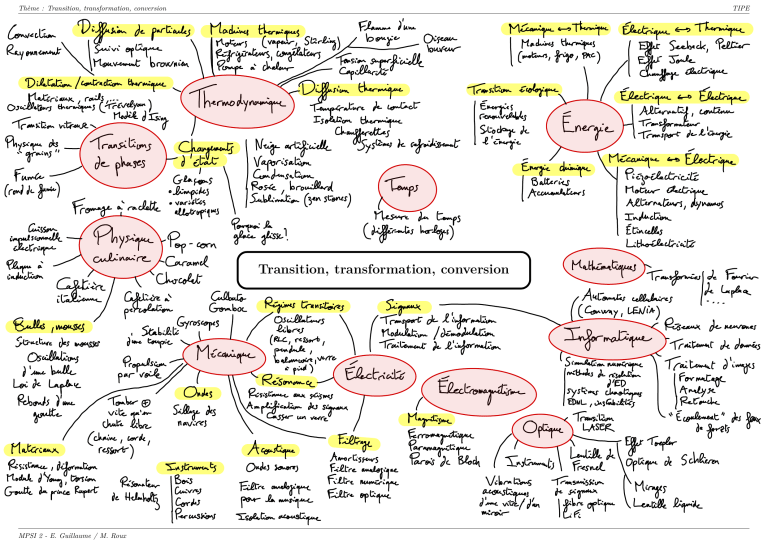 Thème : Transition, transformation, conversion
TIPE
Convection
Rayonnement
Diffusion de particules
Suivi optique
Mouvement brownien
Machines thermiques
Moteurs (vapeur, Stirling)
Réfrigérateurs, congélateurs
Pompe à chaleur
Flamme d'une
bougie
Oiseau
buveur
Tension superficielle
Capillarité
Dilatation/contraction thermique
Matériaux, rails
Oscillateurs thermiques (Trevelyan)
Modèle d'Ising
Transition vitreuse
Thermodynamique
Diffusion thermique
Température de contact
Isolation thermique
Chaufferettes
Systèmes de refroidissement
Physique des
"grains"
Fumée
(rond de fumée)
Transitions
de phases
Changements
d'état
Glaçons
• limpides
• variétés
allotropiques
Neige artificielle
Vaporisation
Condensation
Rosée, brouillard
Sublimation (zen stones)
Pourquoi la
glace glisse?
Temps
Mesure du temps
(différentes horloges)
Mécanique ↔ Thermique
Machines thermiques
(moteurs, frigo, PAC)
Électrique ↔ Thermique
Effet Seebeck, Peltier
Effet Joule
Chauffage électrique
Transition écologique
Énergies
renouvelables
Stockage de
l'énergie
Énergie
Électrique ↔ Électrique
Alternatif, continu
Transformateur
Transport de l'énergie
Énergie chimique
Batteries
Accumulateurs
Mécanique ↔ Électrique
Piézoélectricité
Moteur électrique
Alternateurs, dynamos
Induction
Étincelles
Lithoélectricité
Fromage à raclette
Cuisson
impulsionnelle
électrique
Plaque à
induction
Physique
culinaire
Pop-corn
Caramel
Chocolat
Cafetière
italienne
Cafetière à
percolation
Transition, transformation, conversion
Mathématiques
Transformées de Fourier
de Laplace
....
Bulles, mousses
Structure des mousses
Oscillations
d'une bulle
Loi de Laplace
Rebonds d'une
goutte
Culbuto
Gömböc
Gyroscopes
Stabilité
d'une toupie
Propulsion
par voile
Mécanique
Régimes transitoires
Oscillateurs
libres
(RLC, ressort,
pendule,
balancoire, verre
à pied)
Résonance
Résistance aux séismes
Amplification des signaux
Casser un verre
Électricité
Signaux
Transport de l'information
Modulation / démodulation
Traitement de l'information
Automates cellulaires
(Conway, LENIA)
Informatique
Réseaux de neurones
Traitement de données
Traitement d'images
Formatage
Analyse
Retouche
"Écoulement" des feux
de forêts
Simulation numérique
méthodes de résolution
d'ED
systèmes chaotiques
instabilités
Ondes
Sillage des
navires
Tomber ⊕
vite qu'en
chute libre
(chaîne, corde,
ressort)
Électromagnétisme
Magnétisme
Ferromagnétique
Paramagnétique
Parois de Bloch
Optique
Transition
LASER
Instruments
Vibrations
acoustiques
d'une vitre/d'un
miroir
Lentille de
Fresnel
Transmission
de signaux
fibre optique
LiFi
Effet Toepler
Optique de Schlieren
Mirages
Lentille liquide
Matériaux
Résistance, déformation
Module d'Young, torsion
Goutte du prince Rupert
Résonateur
de Helmholtz
Instruments
Bois
Cuivres
Cordes
Percussions
Acoustique
Ondes sonores
Filtre analogique
pour la musique
Isolation acoustique
Filtrage
Amortisseurs
Filtre analogique
Filtre numérique
Filtre optique
MPSI 2 - E. Guillaume / M. Roux